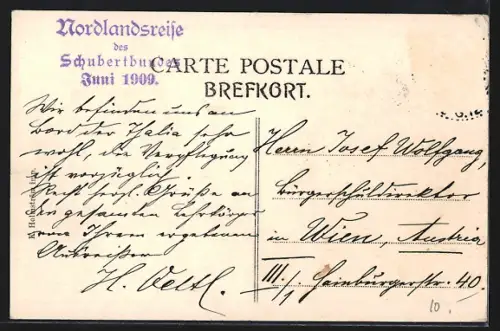 Nordlandsreise
des
Schubertbundes
Juni 1909.
CARTE POSTALE
BREFKORT.
Wir befinden uns an
Bord der Thalia sehr
wohl, die Verpflegung
ist vorzüglich.
Recht herzl. Grüße an
den gesamten Lehrkörper
von Ihrem ergebenen
H. Oestl.
Herrn Josef Wolfgang,
Bürgerschuldirektor
in Wien, Austria
III/1 Hainburgerstr. 40.
10.